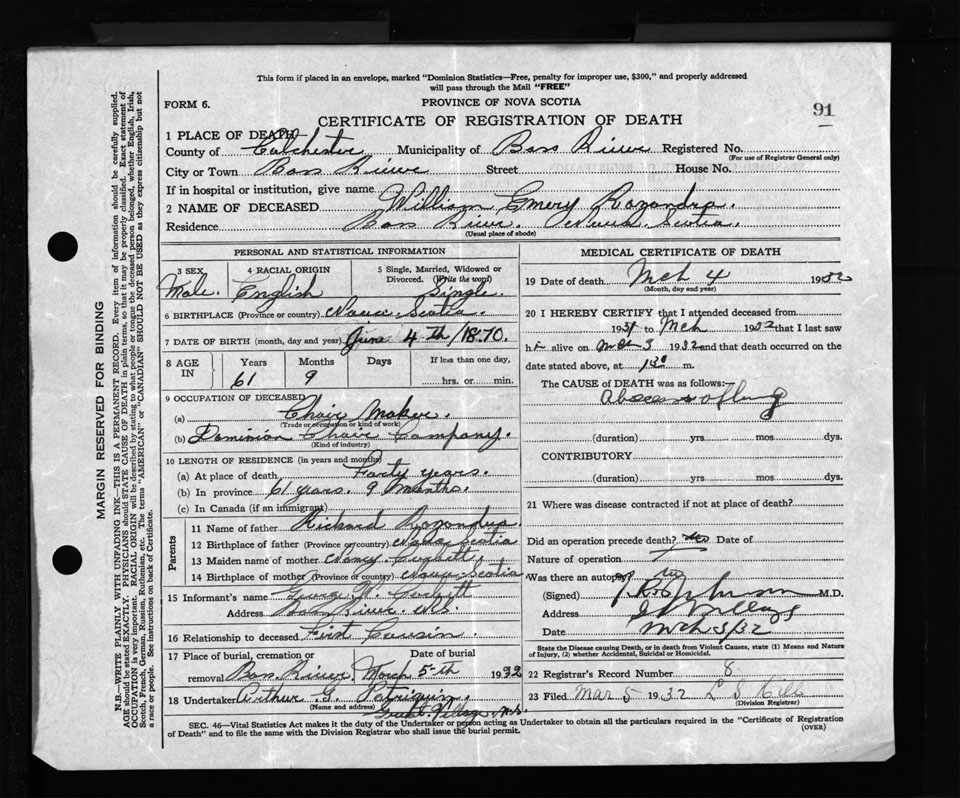 This form if placed in an envelope, marked "Dominion Statistics—Free, penalty for improper use, $300," and properly addressed
will pass through the Mail "FREE"
FORM 6.
PROVINCE OF NOVA SCOTIA
91
CERTIFICATE OF REGISTRATION OF DEATH
1 PLACE OF DEATH
County of Colchester Municipality of Bass River Registered No.
(For use of Registrar General only)
City or Town Bass River Street House No.
If in hospital or institution, give name
2 NAME OF DECEASED William Emery
Residence Bass River. Nova Scotia.
(Usual place of abode)
PERSONAL AND STATISTICAL INFORMATION
3 SEX 4 RACIAL ORIGIN 5 Single, Married, Widowed or
Divorced. (Write the word)
Male. English Single.
6 BIRTHPLACE (Province or country) Nova Scotia.
7 DATE OF BIRTH (month, day and year) June 4th/1870.
8 AGE IN Years Months Days If less than one day,
61 9 hrs. or min.
9 OCCUPATION OF DECEASED
(a) Chair Maker.
(Trade or occupation or kind of work)
(b) Dominion Chair Company.
(Kind of industry)
10 LENGTH OF RESIDENCE (in years and months)
(a) At place of death Forty years.
(b) In province 61 years. 9 Months.
(c) In Canada (if an immigrant)
Parents
11 Name of father Richard
12 Birthplace of father (Province or country) Nova Scotia
13 Maiden name of mother Nancy Corbett
14 Birthplace of mother (Province or country) Nova Scotia
15 Informant's name George W. Corbett
Address Bass River N.S.
16 Relationship to deceased First Cousin.
17 Place of burial, cremation or Date of burial
removal Bass River. March 5th 1932
18 Undertaker Arthur G. Patriquin.
(Name and address) Great Village, N.S.
MEDICAL CERTIFICATE OF DEATH
19 Date of death Mch 4 1932
(Month, day and year)
20 I HEREBY CERTIFY that I attended deceased from
1931 to Mch 1932 that I last saw
h alive on Mch 3 1932 and that death occurred on
date stated above, at 1 30 m.
The CAUSE of DEATH was as follows:
Abscess of lung
(duration) yrs. mos. dys.
CONTRIBUTORY
(duration) yrs. mos. dys.
21 Where was disease contracted if not at place of death?
Did an operation precede death? Date of
Nature of operation
Was there an autopsy?
(Signed) M.D.
Address
Date Mch 5/32
State the Disease causing Death, or in death from Violent Causes, state (1) Means and Nature
of Injury, (2) whether Accidental, Suicidal or Homicidal.
22 Registrar's Record Number 8
23 Filed Mar 5 1932 L S Hill
(Division Registrar)
SEC. 46—Vital Statistics Act makes it the duty of the Undertaker or person acting as Undertaker to obtain all the particulars required in the "Certificate of Registration
of Death" and to file the same with the Division Registrar who shall issue the burial permit.
(OVER)
MARGIN RESERVED FOR BINDING
N.B.—WRITE PLAINLY WITH UNFADING INK—THIS IS A PERMANENT RECORD. Every item of information should be carefully supplied.
AGE should be stated EXACTLY. PHYSICIANS should STATE CAUSE OF DEATH in plain terms, so that it may be properly classified. Exact statement of
OCCUPATION is very important. RACIAL ORIGIN will be described by stating to what people or tongue the deceased person belonged, whether English, Irish,
Scotch, French, German, Russian, Ruthenian, etc. The terms "AMERICAN" or "CANADIAN" SHOULD NOT BE USED as they express citizenship but not
a race or people. See instructions on back of Certificate.